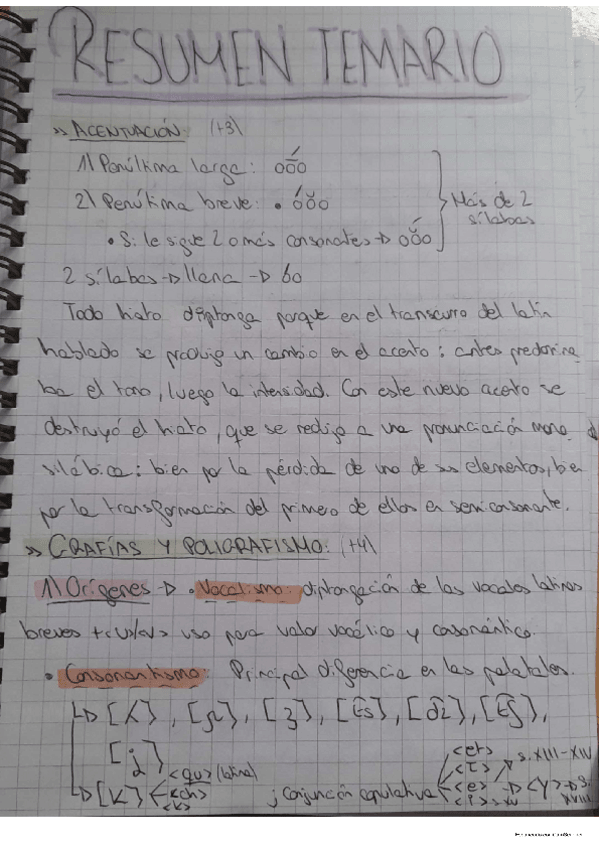 RESUMEN TEMARIO
» ACENTUACIÓN: (+3)
1) Penúltima larga: oṓo
2) Penúltima breve: • óŏo
• Si le sigue 2 o más consonantes → oŏ́o
} Más de 2 sílabas
2 sílabas → llana → óo
Todo hiato diptonga porque en el transcurso del latín
hablado se produjo un cambio en el acento: antes predomina
ba el tono, luego la intensidad. Con este nuevo acento se
destruyó el hiato, que se redujo a una pronunciación mono
silábica: bien por la pérdida de uno de sus elementos, bien
por la transformación del primero de ellos en semiconsonante.
» GRAFÍAS Y POLIGRAFISMO: (+4)
1) Orígenes → • Vocalismo: diptongación de las vocales latinas
breves + <u>/<v> uso para valor vocálico y consonántico.
• Consonantismo: Principal diferencia en las palatales.
→ [ʎ], [ɲ], [ʒ], [t͡s], [d͡z], [t͡ʃ],
[j]
→ [k] <qu> (latina) <ch> <k>
; Conjunción copulativa <et> <τ> <e> <i> s. XV s. XIII-XIV → <y> → s. XVIII